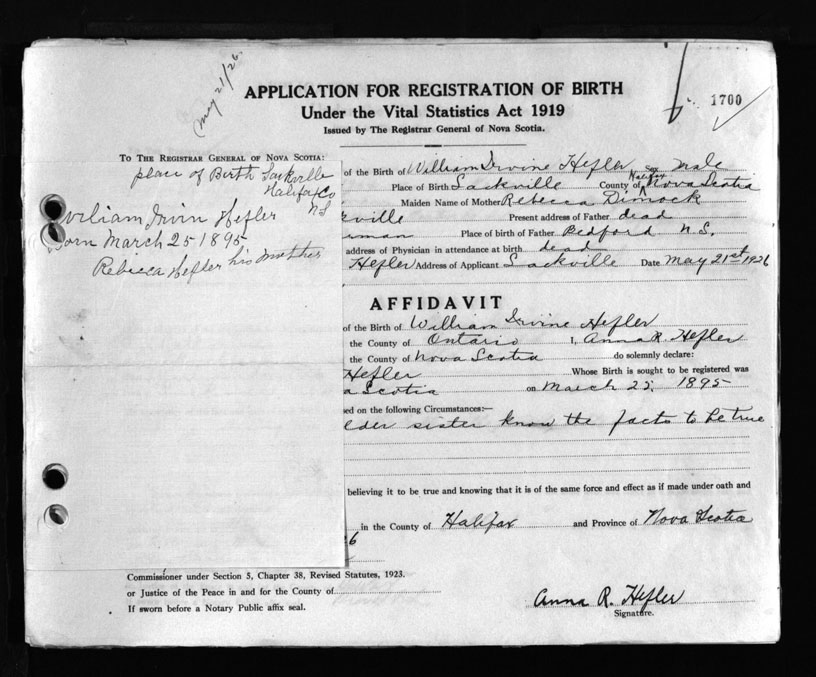 May 21/26
1700
APPLICATION FOR REGISTRATION OF BIRTH
Under the Vital Statistics Act 1919
Issued by The Registrar General of Nova Scotia.
TO THE REGISTRAR GENERAL OF NOVA SCOTIA:
place of Birth Sackville
Halifax Co
NS
William Irvin Hefler
Born March 25 1895
Rebecca Hefler his mother
of the Birth of William Irvine Hefler Sex male
Place of Birth Sackville County of Halifax Nova Scotia
Maiden Name of Mother Rebecca Dimock
ville Present address of Father dead
man Place of birth of Father Bedford N.S.
address of Physician in attendance at birth dead
Hefler Address of Applicant Sackville Date May 21st 1926
AFFIDAVIT
of the Birth of William Irvine Hefler
the County of Ontario I, Anna R. Hefler
the County of Nova Scotia do solemnly declare:
Hefler Whose Birth is sought to be registered was
a Scotia on March 25, 1895
ed on the following Circumstances:—
lder sister know the facts to be true
believing it to be true and knowing that it is of the same force and effect as if made under oath and
in the County of Halifax and Province of Nova Scotia
26
Commissioner under Section 5, Chapter 38, Revised Statutes, 1923.
or Justice of the Peace in and for the County of
If sworn before a Notary Public affix seal.
Anna R. Hefler
Signature.